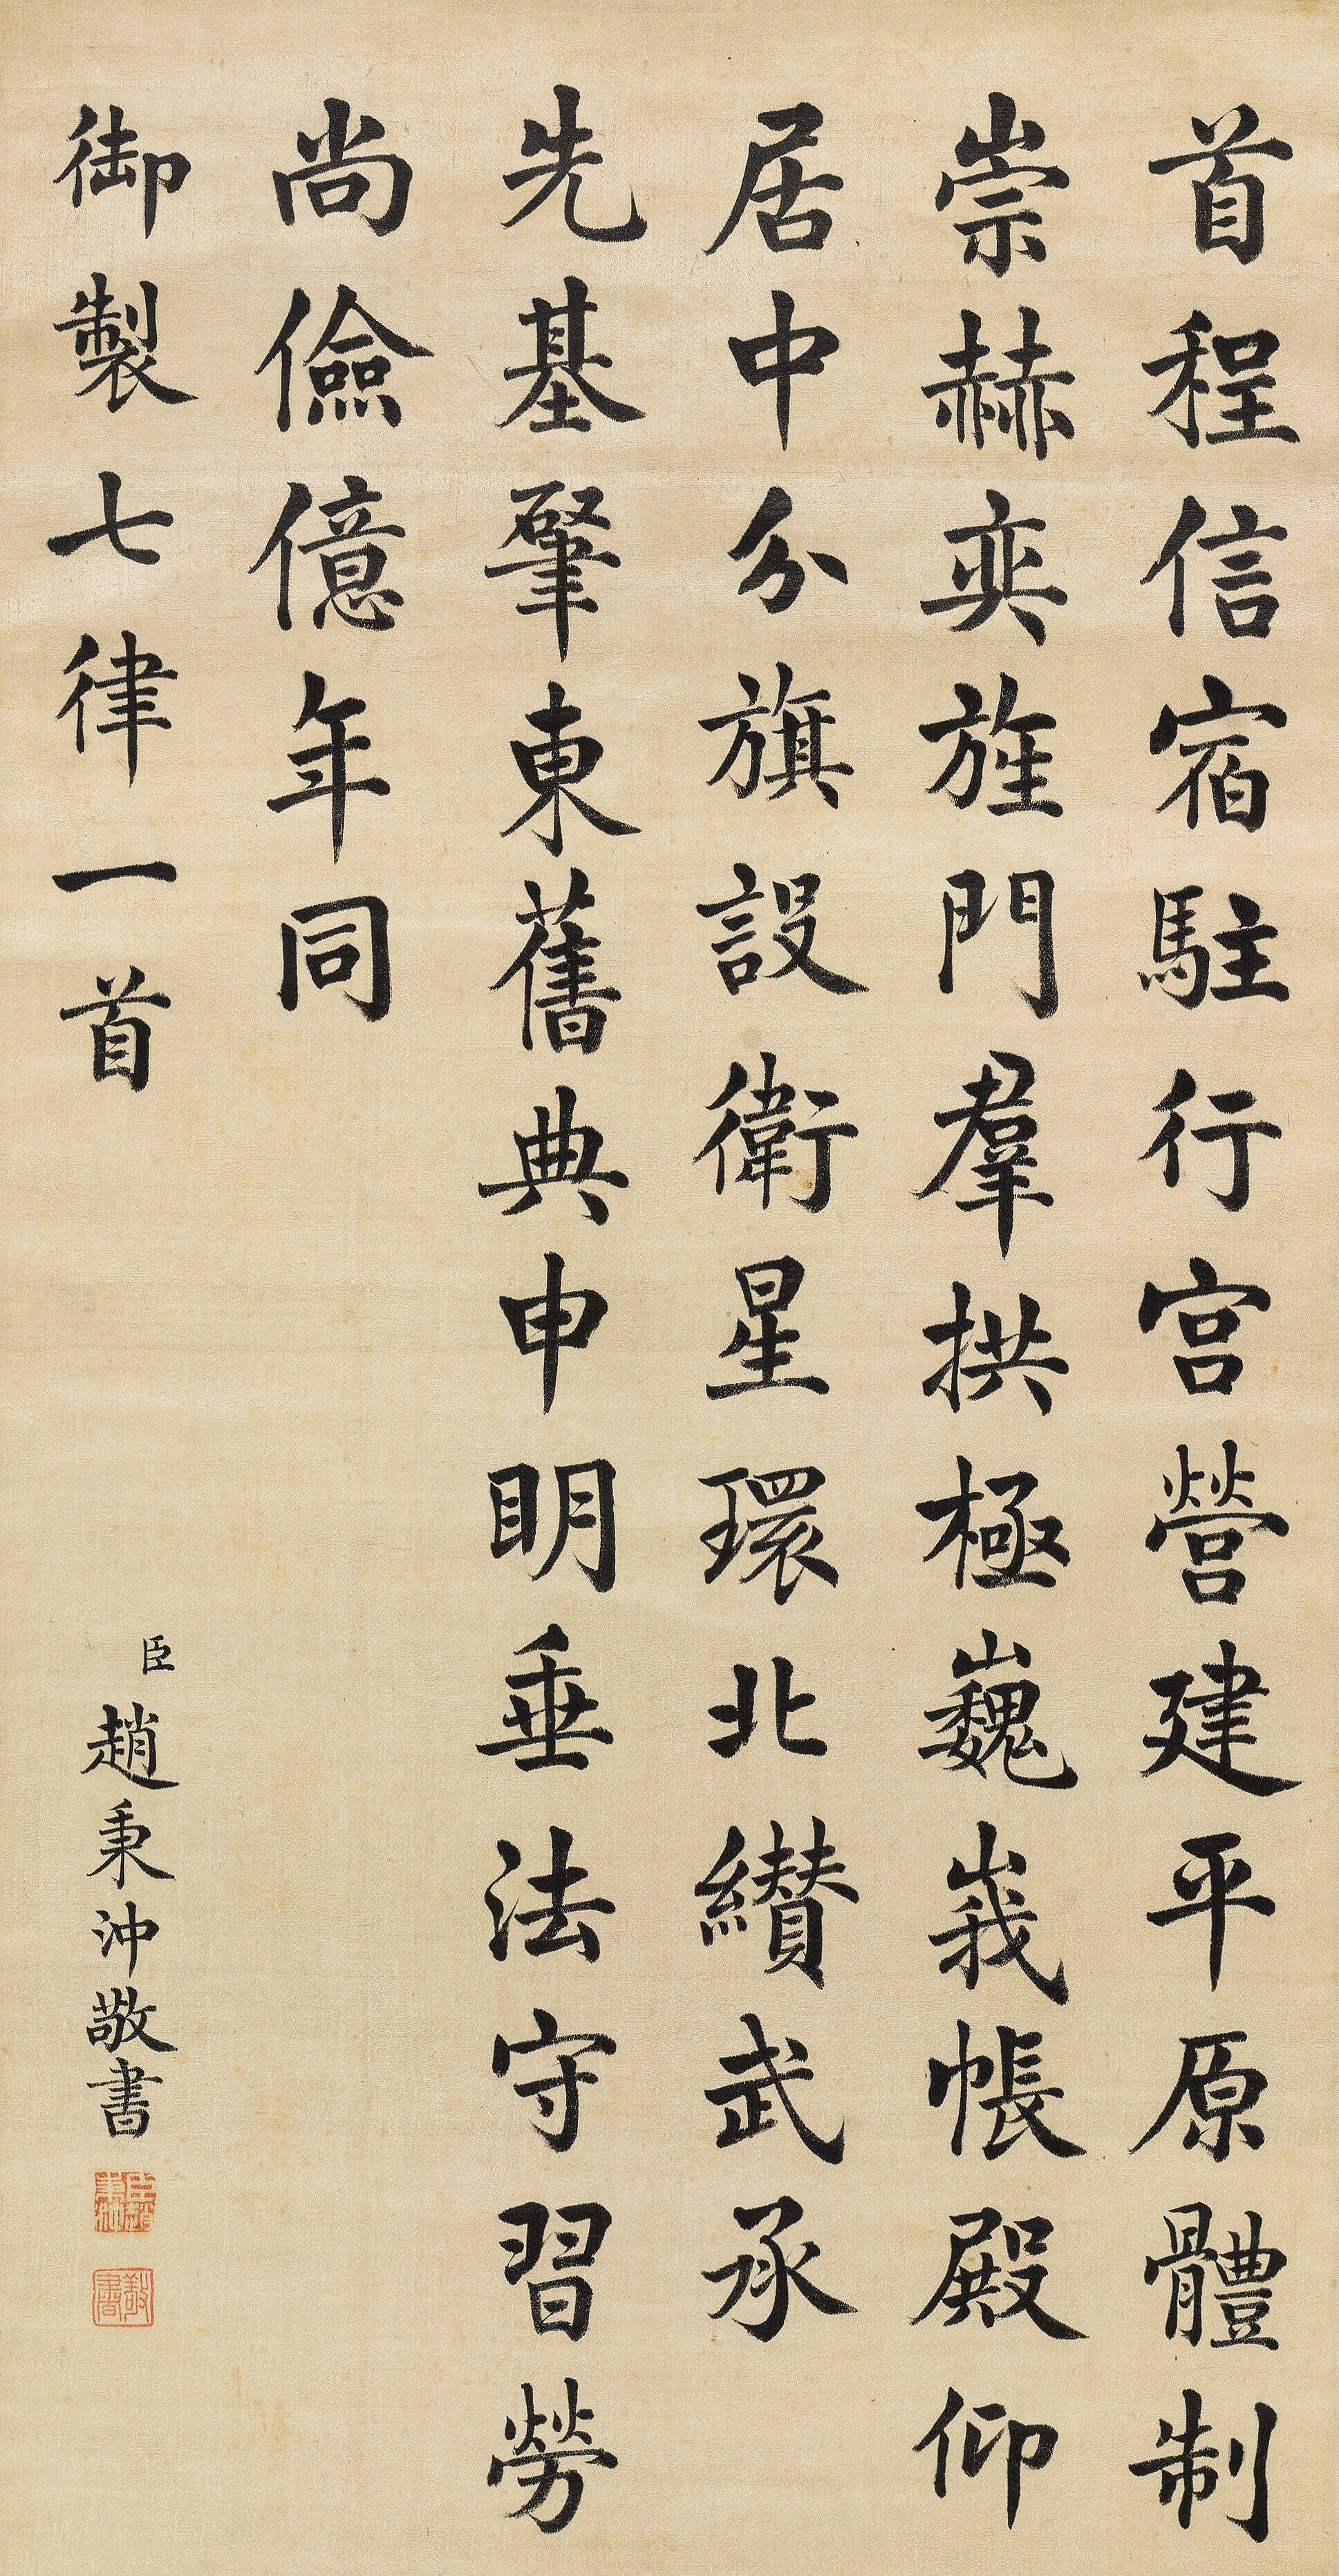 首程信宿駐行宮營建平原體制
崇赫奕旌門羣拱極巍峩帳殿仰
居中分旗設衛星環北纘武承
先基肇東舊典申明垂法守習勞
尚儉億年同
御製七律一首
臣趙秉沖敬書
敬書